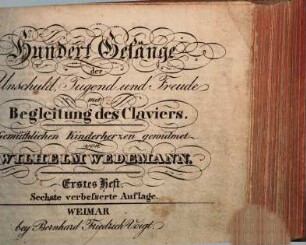 Hundert Gesänge
der
Unschuld, Tugend und Freude
mit
Begleitung des Claviers.
Gemüthlichen Kinderherzen gewidmet
von
WILHELM WEDEMANN.
Erstes Heft.
Sechste verbesserte Auflage.
WEIMAR
bey Bernhard Friedrich Voigt.